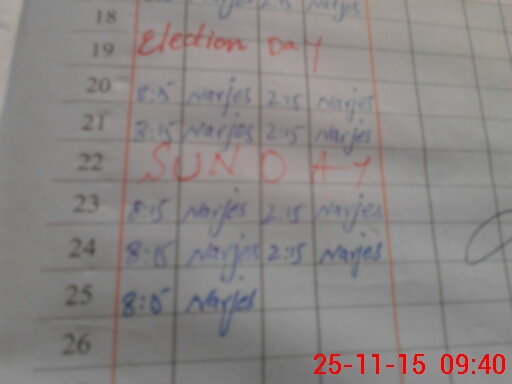 18 Narjes 2:15 Narjes
19 Election Day
20 8:15 Narjes 2:15 Narjes
21 8:15 Narjes 2:15 Narjes
22 SUNDAY
23 8:15 Narjes 2:15 Narjes
24 8:15 Narjes 2:15 Narjes
25 8:15 Narjes
26
25-11-15 09:40